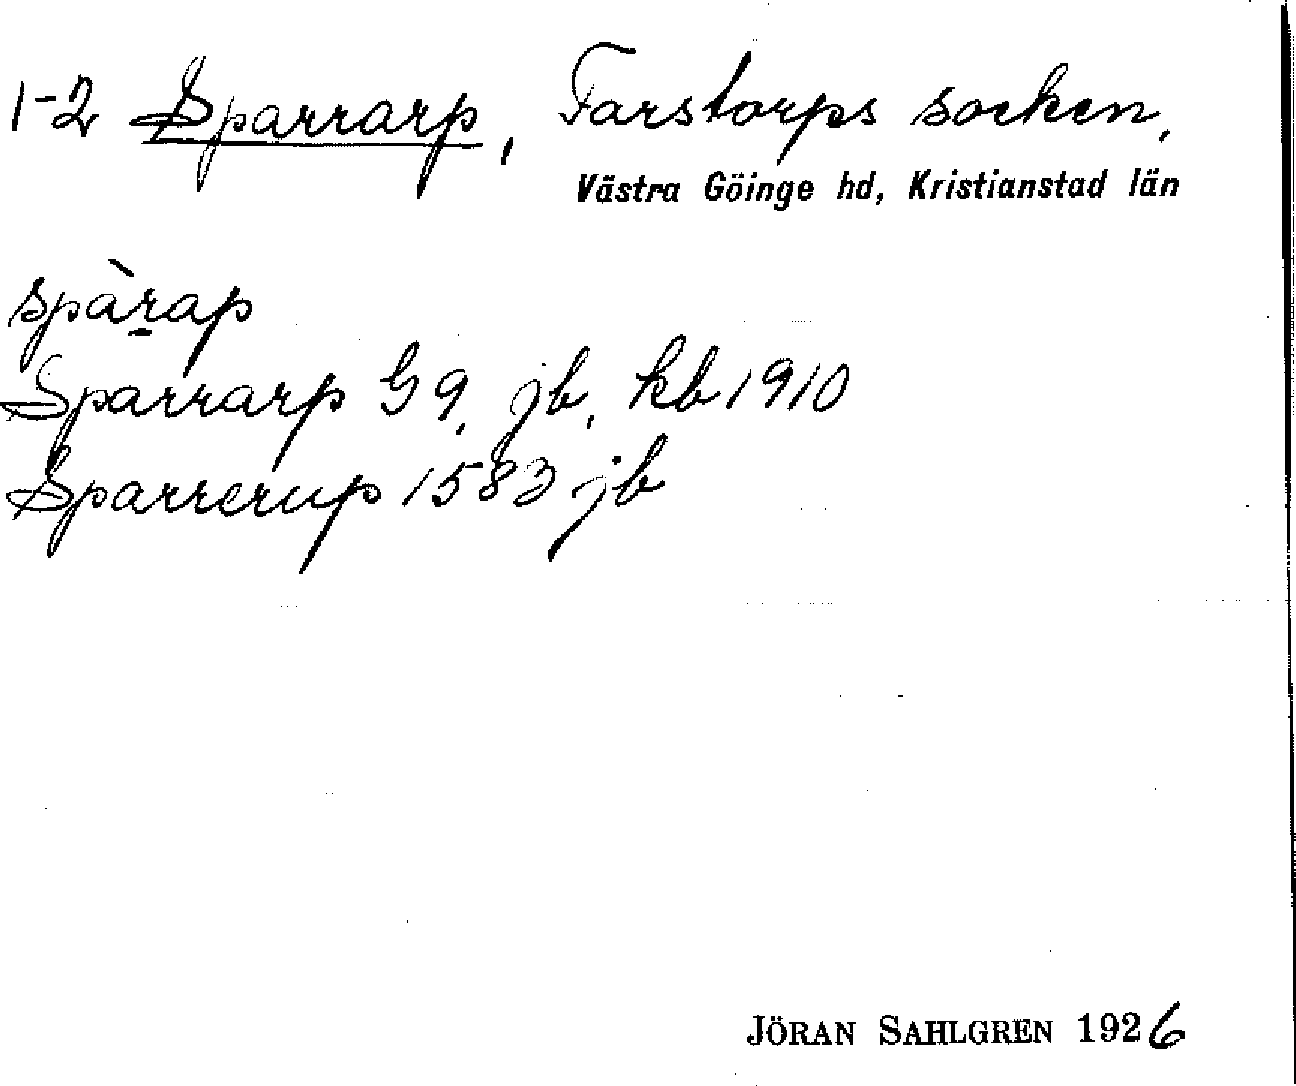 1-2 Sparrarp, Farstorps socken,
Västra Göinge hd, Kristianstad län
spàrap
Sparrarp G9, jb, kb 1910
Sparrerup 1583 jb
JÖRAN SAHLGREN 1926